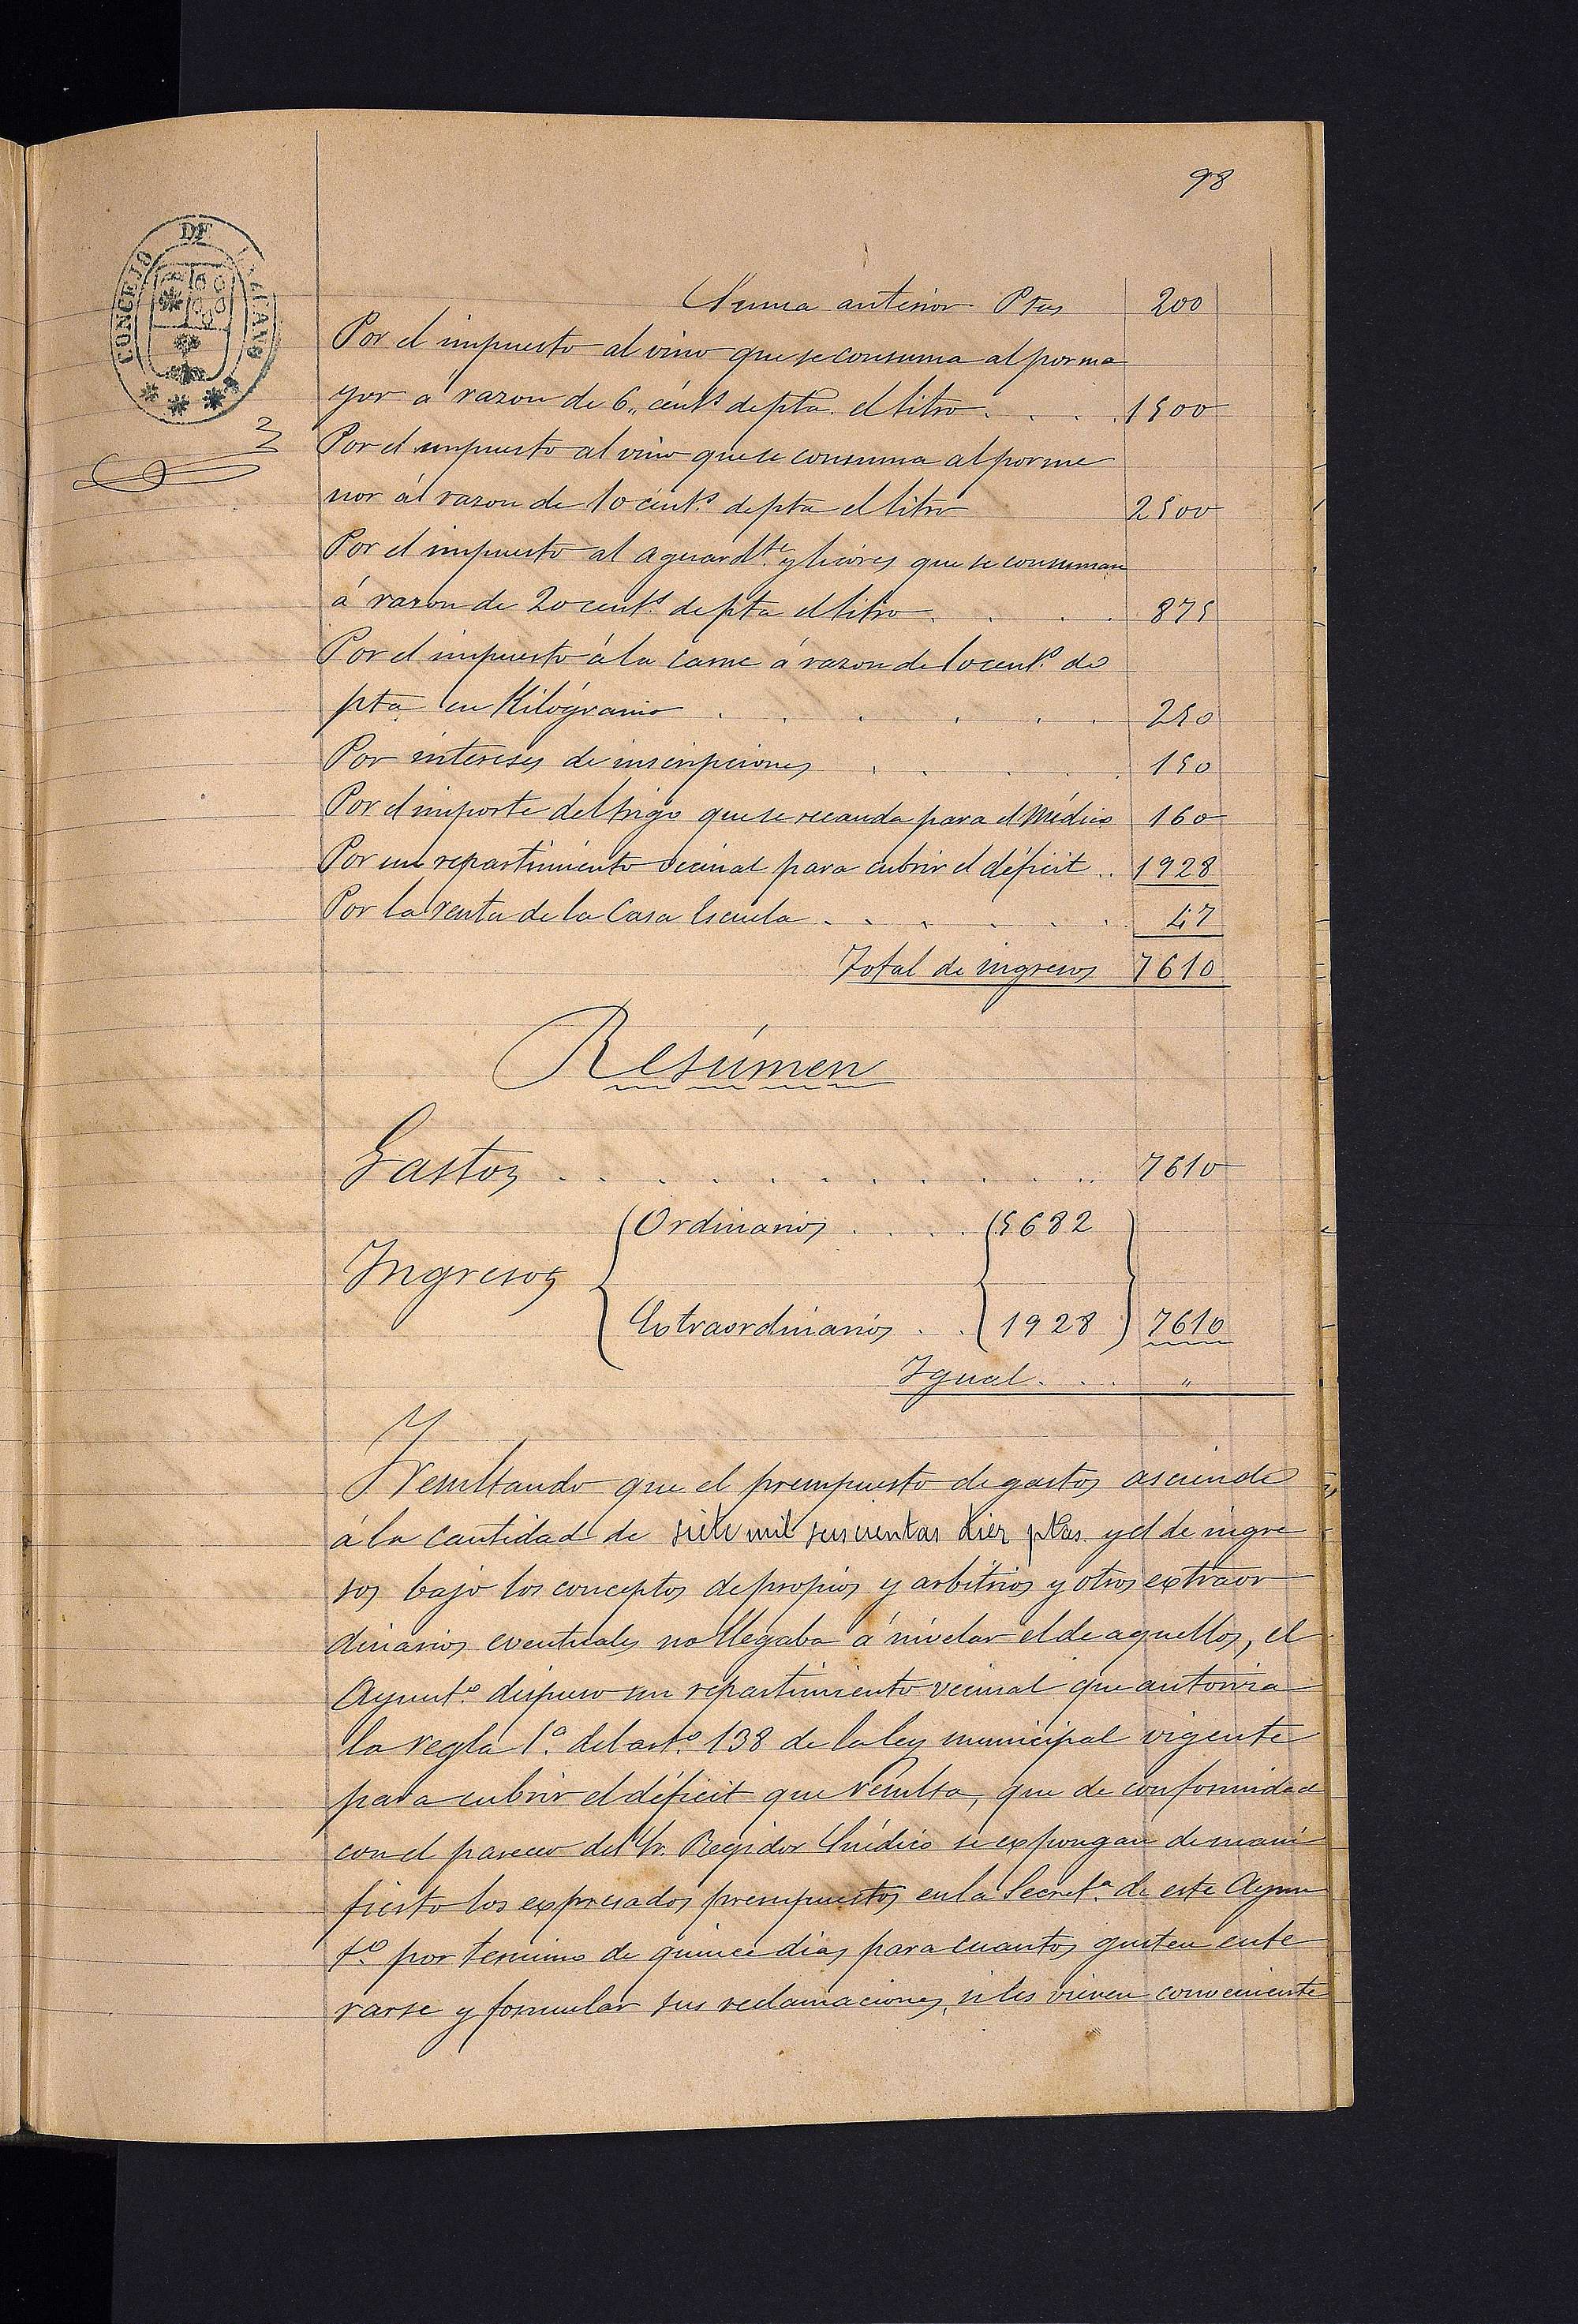 98
CONCEJO DE
Suma anterior Ptas 200
Por el impuesto al vino que se consuma al por ma
yor a razon de 6,, cénts de pta. el litro . . . . 1500
Por el impuesto al vino que se consuma al por me
nor á razon de 10 cént.s de pta el litro 2500
Por el impuesto al aguard.te y licores que se consuman
á razon de 20 cent.s de pta el litro . . . . 875
Por el impuesto á la carne á razon de 10 cent.s de
pta en Kilógramo . . . . . . 250
Por intereses de inscripciones . . . . . 150
Por el importe del trigo que se recauda para el Médico 160
Por un repartimiento vecinal para cubrir el déficit .. 1928
Por la renta de la Casa Escuela . . . . . . 47
Total de ingresos 7610
Resúmen
Gastos . . . . . . . . . . . 7610
Ordinarios . . . . . 5682
Ingresos
Extraordinarios . . . 1928 7610
Igual . . . . "
Y resultando que el presupuesto de gastos asciende
á la cantidad de siete mil seiscientas diez ptas. y el de ingre
sos bajo los conceptos de propios y arbitrios y otros extraor
dinarios eventuales no llegaba á nivelar el de aquellos, el
Ayunt.o dispuso un repartimiento vecinal que autoriza
la regla 1.a del art.o 138 de la ley municipal vigente
para cubrir el déficit que resulta, que de conformidad
con el parecer del Sr. Regidor Síndico se expongan de mani
fiesto los expresados presupuestos en la Secret.a de este Ayun
t.o por termino de quince dias para cuantos gusten ente
rarse y formular sus reclamaciones, si les vieren conveniente